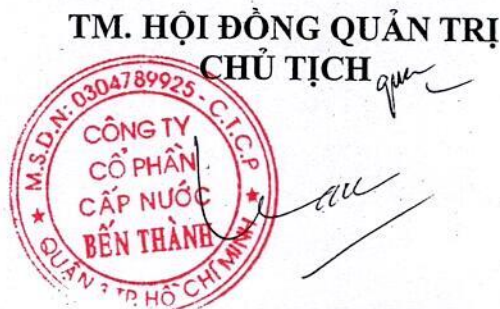 TM. HỘI ĐỒNG QUẢN TRỊ
CHỦ TỊCH
M.S.D.N: 0304789925 - C.T.C.P
CÔNG TY
CỔ PHẦN
CẤP NƯỚC
BẾN THÀNH
QUẬN 3 TP. HỒ CHÍ MINH